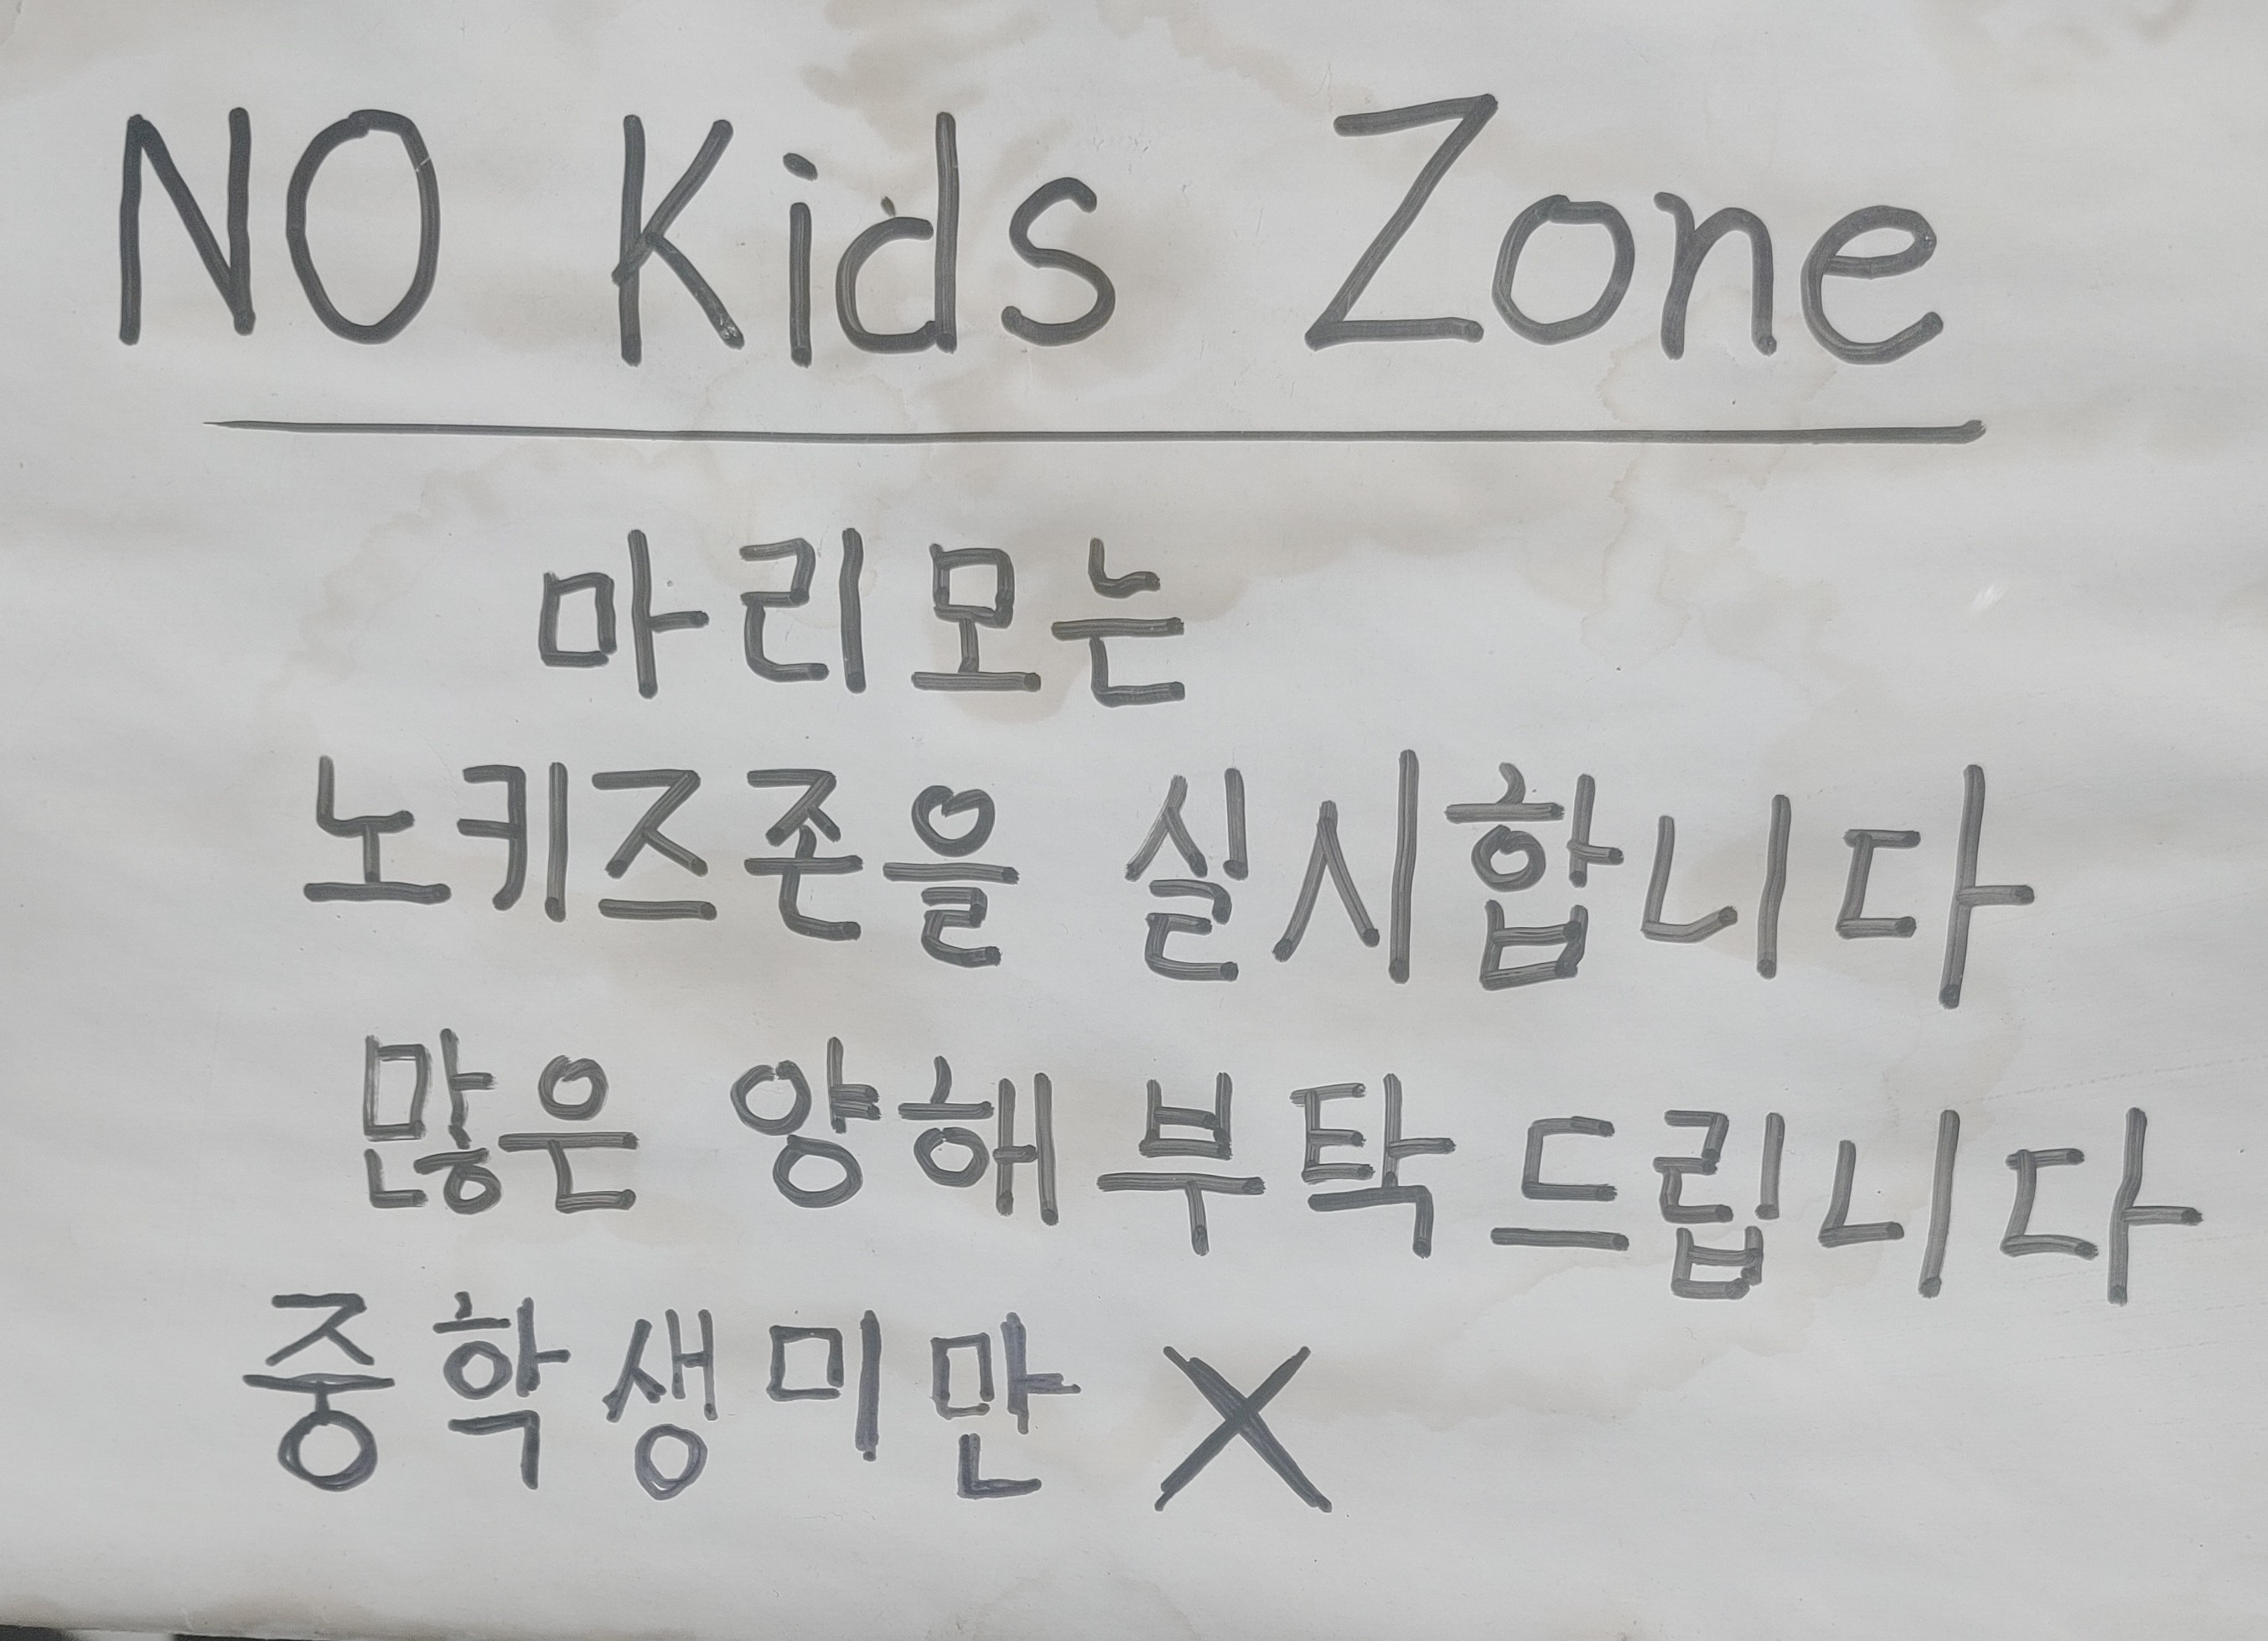 NO Kids Zone
마리모는
노키즈존을 실시합니다
많은 양해부탁드립니다
중학생미만 X